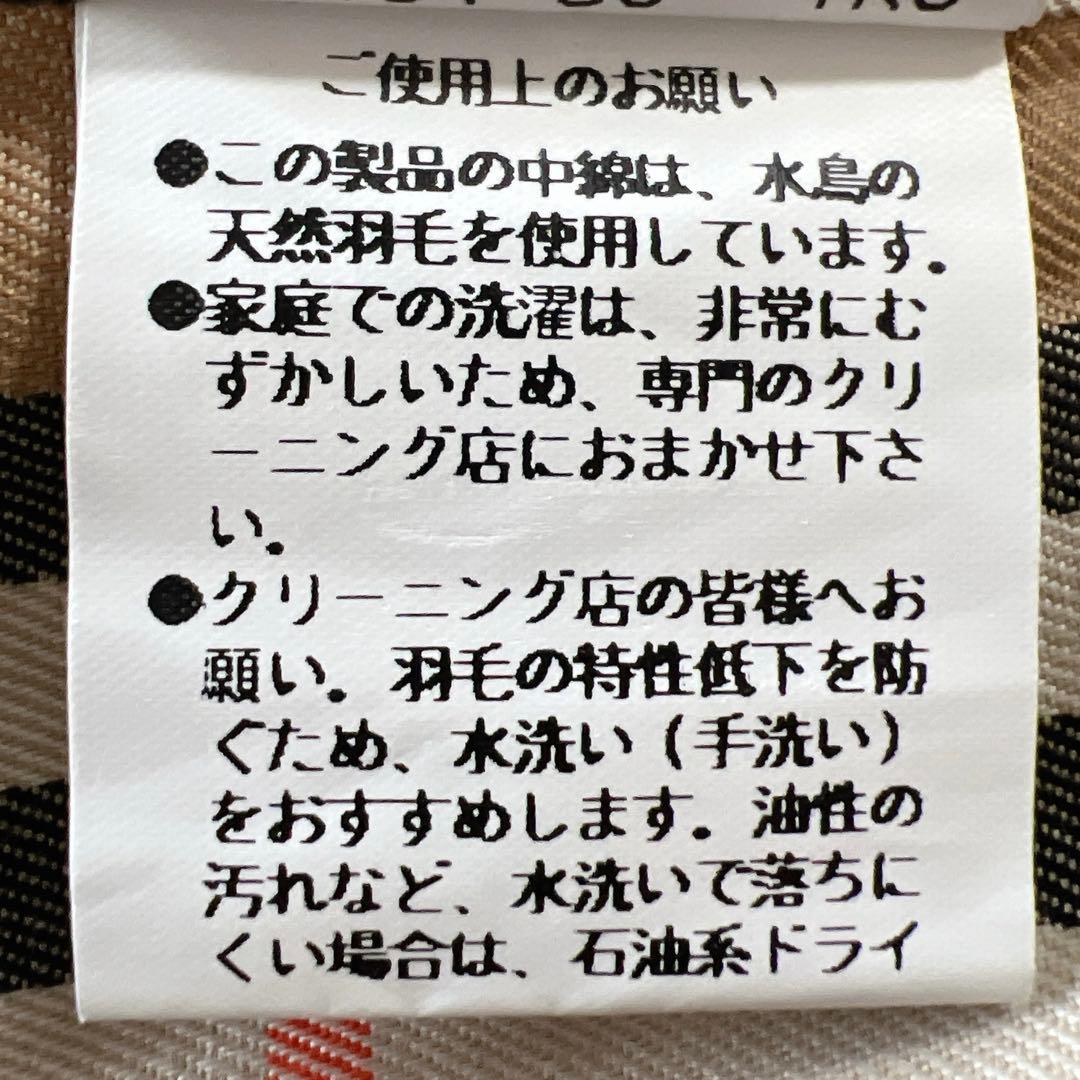 ご使用上のお願い
●この製品の中綿は、水鳥の
天然羽毛を使用しています。
●家庭での洗濯は、非常にむ
ずかしいため、専門のクリ
ーニング店におまかせ下さ
い。
●クリーニング店の皆様へお
願い。羽毛の特性低下を防
ぐため、水洗い(手洗い)
をおすすめします。油性の
汚れなど、水洗いで落ちに
くい場合は、石油系ドライ